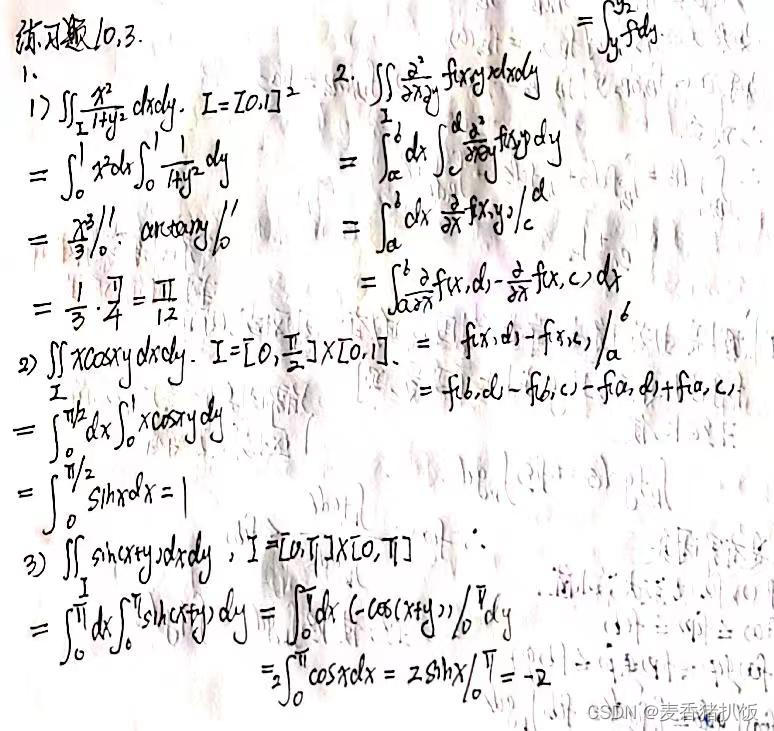 练习题10.3.
= ∫_{y₁}^{y₂} f dy.
1.
1) ∬_I x²/(1+y²) dxdy. I=[0,1]²
= ∫₀¹ x²dx ∫₀¹ 1/(1+y²) dy
= x³/3 |₀¹ · arctany |₀¹
= 1/3 · π/4 = π/12
2) ∬_I xcosxy dxdy. I=[0, π/2]×[0,1].
= ∫₀^{π/2} dx ∫₀¹ xcosxy dy
= ∫₀^{π/2} sinx dx = 1
3) ∬_I sin(x+y) dxdy, I=[0,π]×[0,π]
= ∫₀^π dx ∫₀^π sin(x+y) dy = ∫₀^π dx (-cos(x+y)) |₀^π dy
= 2∫₀^π cosx dx = 2sinx |₀^π = -2
2. ∬_I ∂²/∂x∂y f(x,y) dxdy
= ∫_a^b dx ∫_c^d ∂²/∂x∂y f(x,y) dy
= ∫_a^b dx ∂/∂x f(x,y) |_c^d
= ∫_a^b ∂/∂x f(x,d) - ∂/∂x f(x,c) dx
= f(x,d) - f(x,c) |_a^b
= f(b,d) - f(b,c) - f(a,d) + f(a,c).
CSDN @麦香猪扒饭